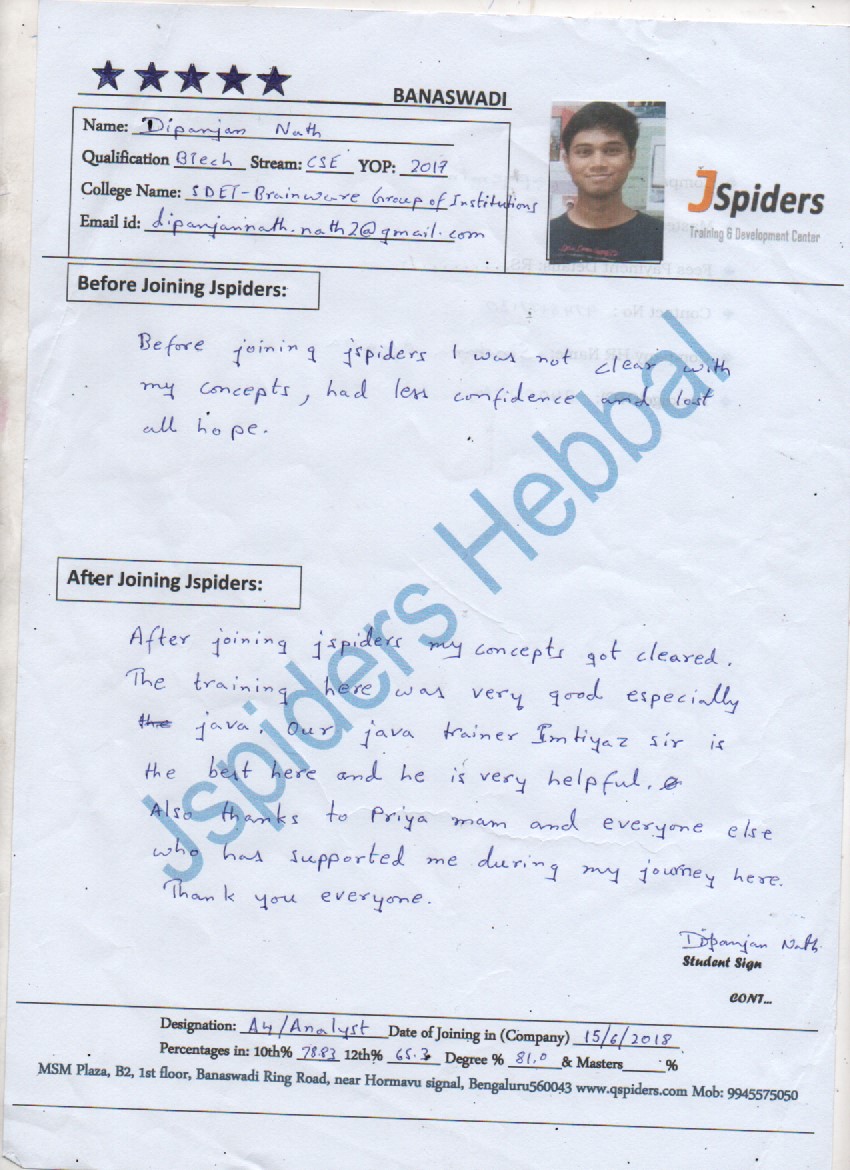 BANASWADI
Name: Dipanjan Nath
Qualification BTech Stream: CSE YOP: 2017
College Name: SDET-Brainware Group of Institutions
Email id: dipanjannath.nath2@gmail.com
JSpiders
Training & Development Center
Before Joining Jspiders:
Before joining jspiders I was not clear with
my concepts, had less confidence and lost
all hope.
Jspiders Hebbal
After Joining Jspiders:
After joining jspiders my concepts got cleared.
The training here was very good especially
the java. Our java trainer Imtiyaz sir is
the best here and he is very helpful.
Also thanks to Priya mam and everyone else
who has supported me during my journey here.
Thank you everyone.
Dipanjan Nath
Student Sign
CONT...
Designation: A4/Analyst Date of Joining in (Company) 15/6/2018
Percentages in: 10th% 78.83 12th% 65.3 Degree % 81.0 & Masters_____%
MSM Plaza, B2, 1st floor, Banaswadi Ring Road, near Hormavu signal, Bengaluru560043 www.qspiders.com Mob: 9945575050